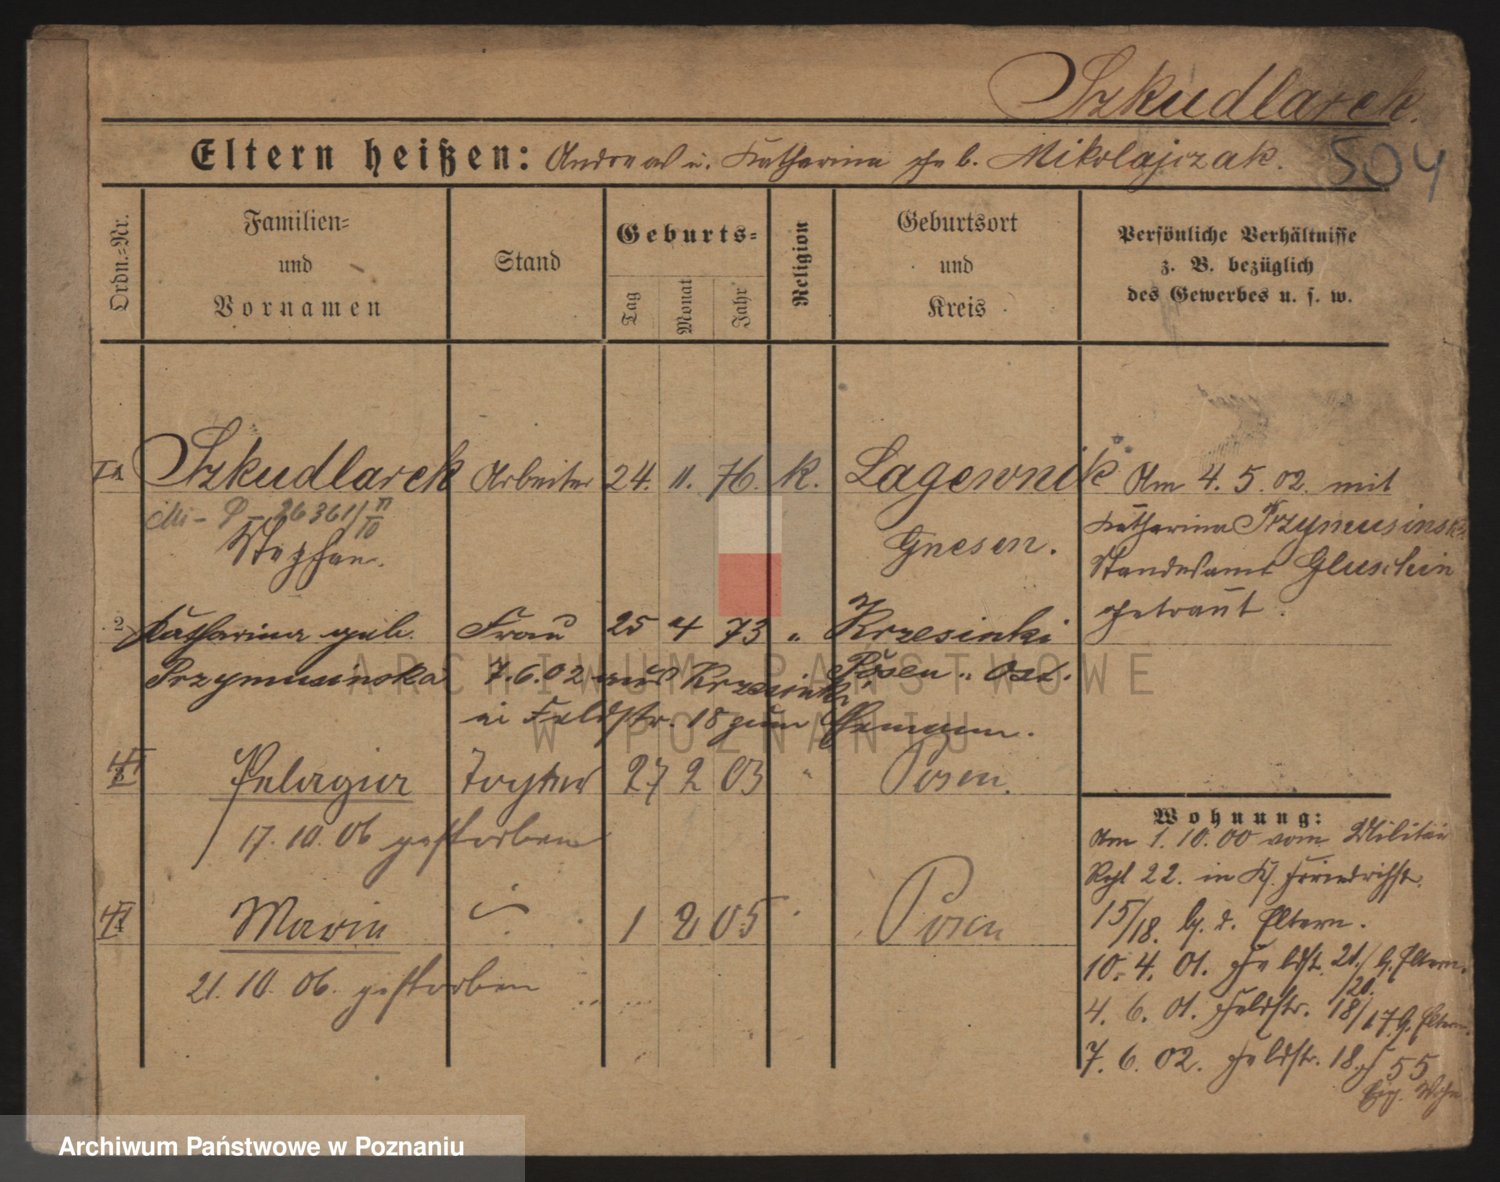 Szkudlarek.
Eltern heißen: Andreas u. Katharina geb. Mikolajczak.
504
Ordn.-Nr.
Familien-
und
Vornamen
Stand
Geburts-
Tag
Monat
Jahr
Religion
Geburtsort
und
Kreis
Persönliche Verhältnisse
z. B. bezüglich
des Gewerbes u. s. w.
Szkudlarek Arbeiter 24. 11. 76. K. Lagewnik
26361
Stephan. Gnesen.
Am 4. 5. 02. mit
Katharina Przymusinska
Standesamt Gluschin
getraut.
2 Katharina geb. Frau 25 4 73 " Krzesinki
Przymusinska Posen Ost.
7.6.02 aus Krzesinki
in Feldstr. 18 zum Ehemann.
Pelagia Tochter 27 2 03 " Posen.
17. 10. 06 gestorben
Maria 1 2 05 Posen
21. 10. 06. gestorben
Wohnung:
Am 1. 10. 00 vom Militär
Regt 22. in Friedrichstr.
15/18. b. d. Eltern.
10. 4. 01. Feldstr. 21/20. b. Eltern.
4. 6. 01. Feldstr. 18/17 b. Eltern.
7. 6. 02. Feldstr. 18. 55
ARCHIWUM PAŃSTWOWE
W POZNANIU
Archiwum Państwowe w Poznaniu